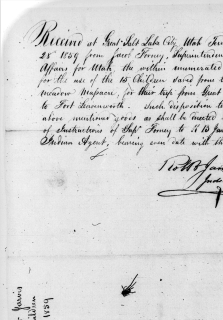 Received at Great Salt Lake City, Utah
28" 1859 from Jacob Forney, Superintenden
Affairs for Utah, the within enumerated
for the use of the 15 Children saved from t
meadow Massacre, for their trip from Great
to Fort Leavenworth. Such disposition to
above mentioned goods as shall be directed
of Instructions of Supt Forney to R B Jar
Indian Agent, bearing even date with th
Ro B Jar
Ind
Jarvis
Children
1859